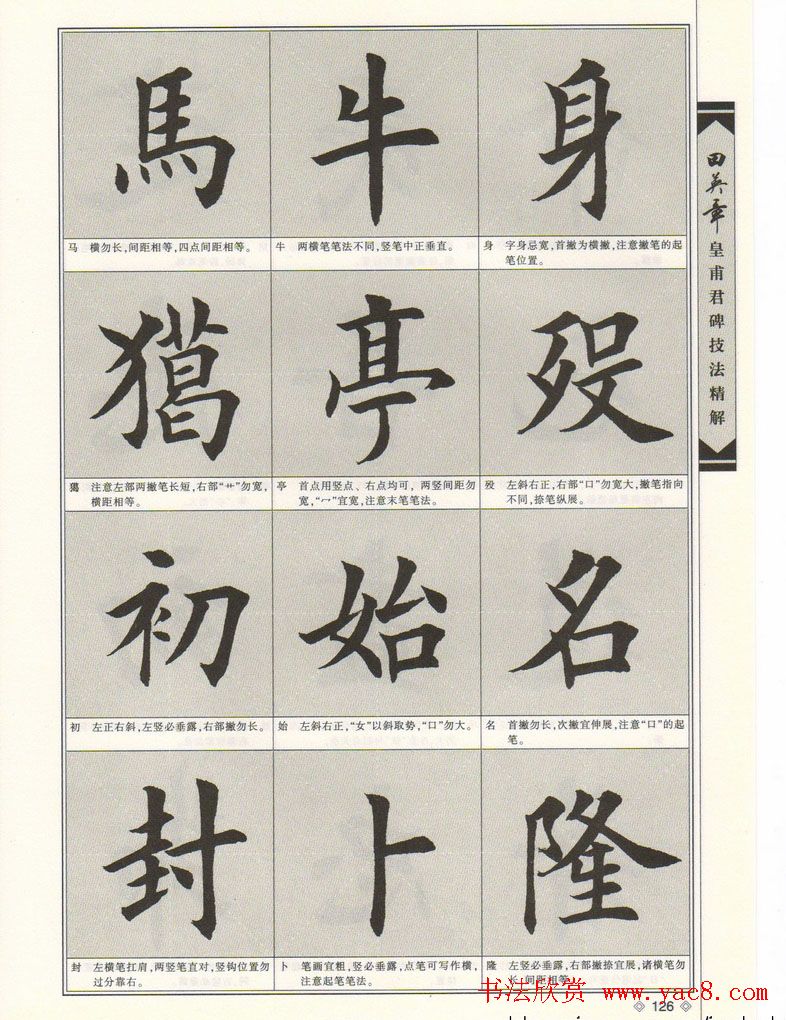 馬 牛 身
马 横勿长,间距相等,四点间距相等。
牛 两横笔笔法不同,竖笔中正垂直。
身 字身忌宽,首撇为横撇,注意撇笔的起
笔位置。
獦 亭 殁
獦 注意左部两撇笔长短,右部“艹”勿宽,
横距相等。
亭 首点用竖点、右点均可,两竖间距勿
宽,“冖”宜宽,注意末笔笔法。
殁 左斜右正,右部“口”勿宽大,撇笔指向
不同,捺笔纵展。
初 始 名
初 左正右斜,左竖必垂露,右部撇勿长。
始 左斜右正,“女”以斜取势,“口”勿大。
名 首撇勿长,次撇宜伸展,注意“口”的起
笔。
封 卜 隆
封 左横笔扛肩,两竖笔直对,竖钩位置勿
过分靠右。
卜 笔画宜粗,竖必垂露,点笔可写作横,
注意起笔笔法。
隆 左竖必垂露,右部撇捺宜展,诸横笔勿
长,间距相等。
田英章
皇甫君碑技法精解
书法欣赏 www.yac8.com
126